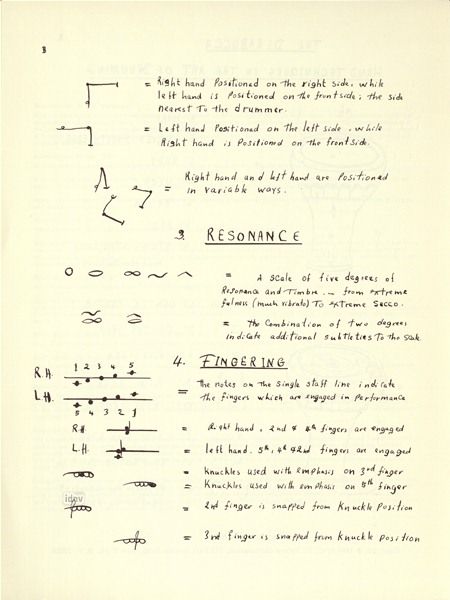 3
= Right hand Positioned on the right side, while
left hand is Positioned on the frontside; the side
nearest To the drummer.
= Left hand Positioned on the left side, while
Right hand is Positioned on the frontside.
= Right hand and left hand are Positioned
in variable ways.
3. RESONANCE
= A scale of five degrees of
Resonance and Timbre — from extreme
fulness (much vibrato) To extreme Secco.
= the Combination of two degrees
indicate additional subtleties To the Scale
4. FINGERING
R.H. 1 2 3 4 5
L.H.
5 4 3 2 1
= The notes on the Single staff line indicate
the fingers which are engaged in performance
R.H. = Right hand, 2nd & 4th fingers are engaged
L.H. = left hand. 5th, 4th & 2nd fingers are engaged
= Knuckles used with emphasis on 3rd finger
= Knuckles used with emphasis on 5th finger
idev
= 2nd finger is snapped from Knuckle Position
= 3rd finger is snapped from Knuckle Position